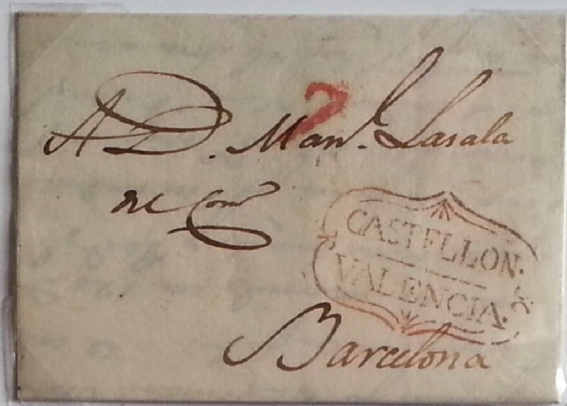 7
A D. Man.l Lasala
del Com.o
CASTELLON.
VALENCIA.
Barcelona